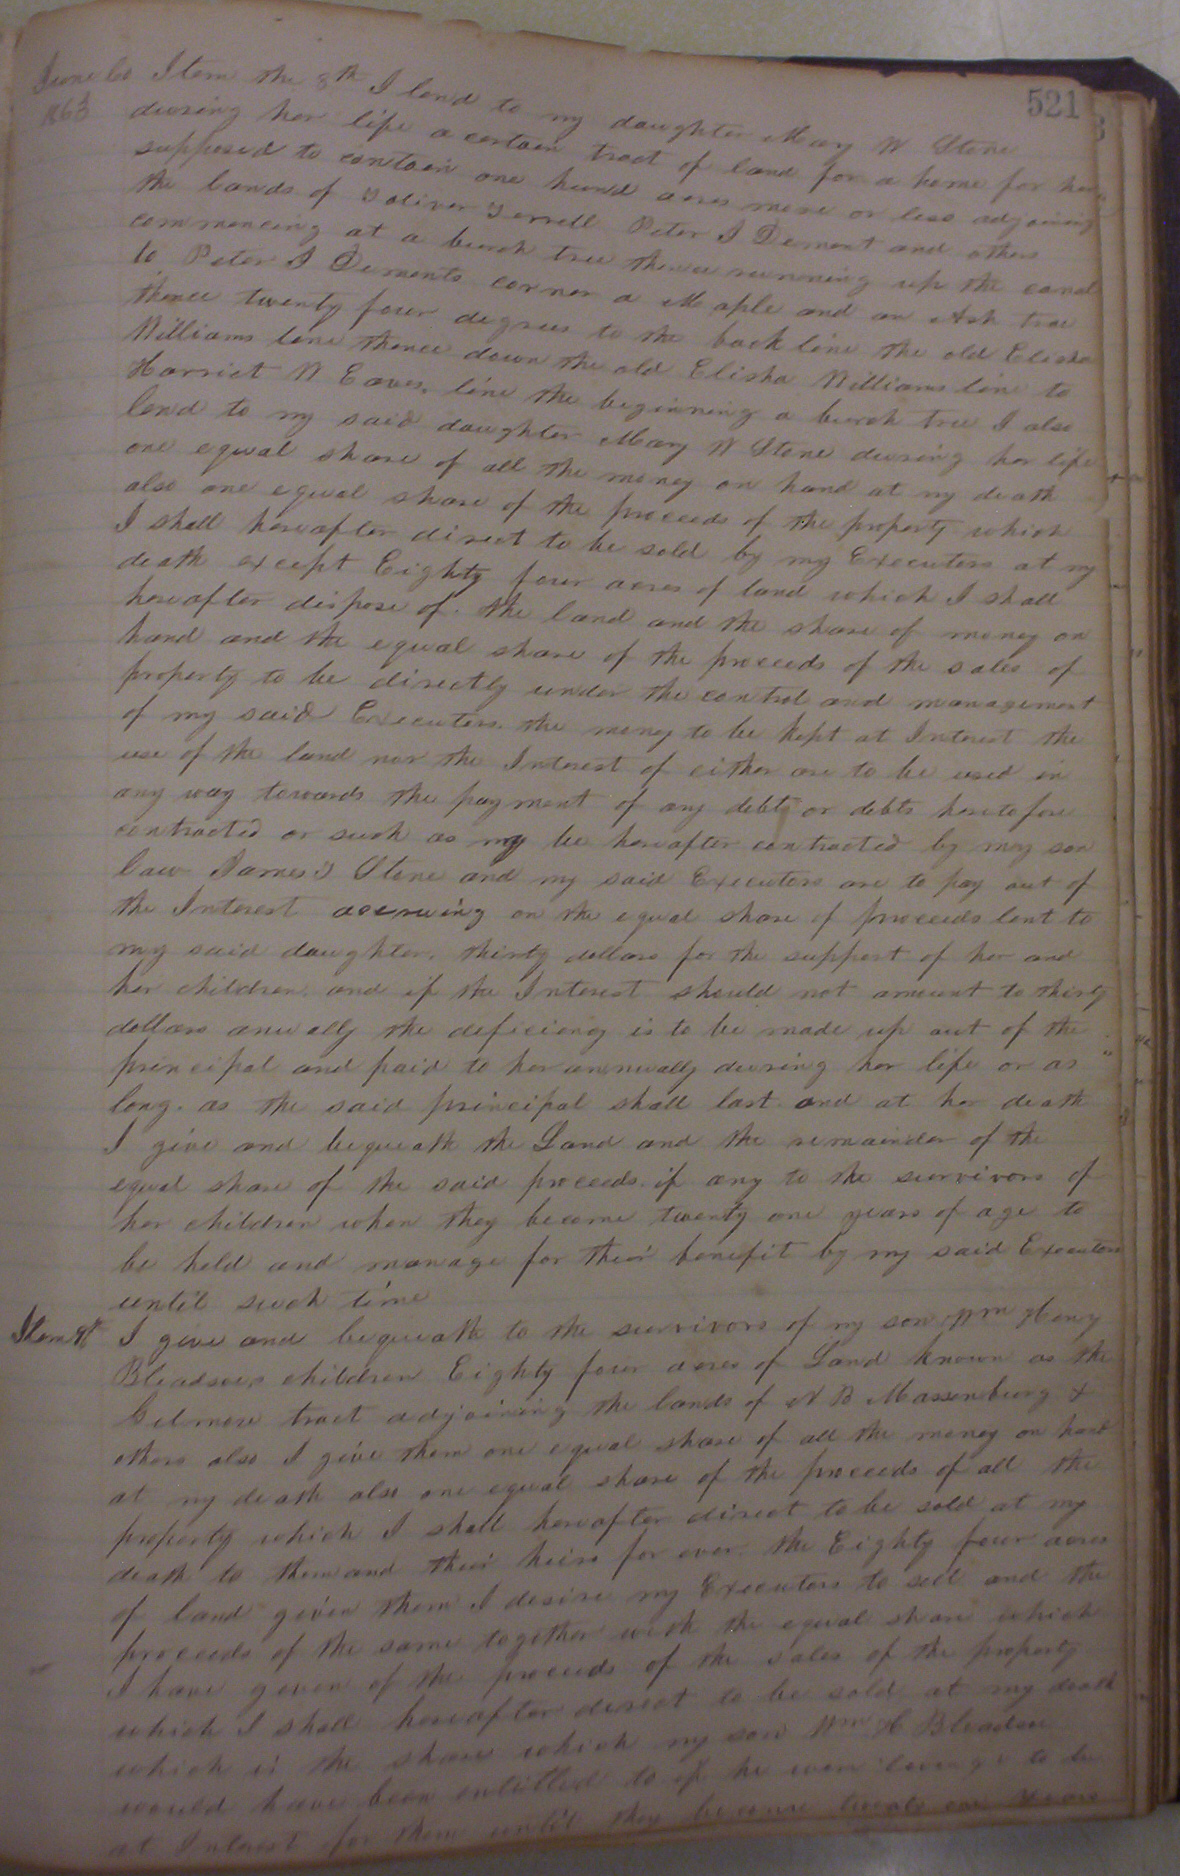 521
June Co Item the 8th I lend to my daughter Mary W Stone
1863 during her life a certain tract of land for a home for her
supposed to contain one hund acres more or less adjoining
the lands of Toliver Terrell Peter I Dement and others
commencing at a burch tree thence running up the canal
to Peter I Dements corner a Maple and an Ash tree
thence twenty four degrees to the back line the old Elisha
Williams line thence down the old Elisha Williams line to
Harriet W Eaves, line the beginning a burch tree I also
lend to my said daughter Mary W Stone during her life
one equal share of all the money on hand at my death
also one equal share of the proceeds of the property which
I shall hereafter direct to be sold by my Executors at my
death except Eighty four acres of land which I shall
hereafter dispose of. the land and the share of money on
hand and the equal share of the proceeds of the sales of
property to be directly under the control and management
of my said Executors. the money to be kept at Interest the
use of the land nor the Interest of either are to be used in
any way towards the payment of any debt or debts heretofore
contracted or such as my be hereafter contracted by my son
law James Stone and my said Executors are to pay out of
the Interest accruing on the equal share of proceeds lent to
my said daughter, thirty dollars for the support of her and
her children and if the Interest should not amount to thirty
dollars anually the deficiency is to be made up out of the
principal and paid to her annually during her life or as
long. as the said principal shall last and at her death
I give and bequeath the Land and the remainder of the
equal share of the said proceeds if any to the survivors of
her children when they become twenty one years of age to
be held and manage for their benefit by my said Executors
until such time
Item 9th I give and bequeath to the survivors of my son Wm Henry
Bledsoes children Eighty four acres of Land known as the
Gilmore tract adjoining the lands of N B Massenburg &
others also I give them one equal share of all the money on hand
at my death also one equal share of the proceeds of all the
property which I shall hereafter direct to be sold at my
death to them and their heirs for ever. the Eighty four acres
of land given them I desire my Executors to sell and the
proceeds of the same together with the equal share which
I have given of the proceeds of the sales of the property
which I shall hereafter direct to be sold at my death
which is the share which my son Wm H Bledsoe
would have been entitled to if he were living to be
at Interest for them until they become twenty one years